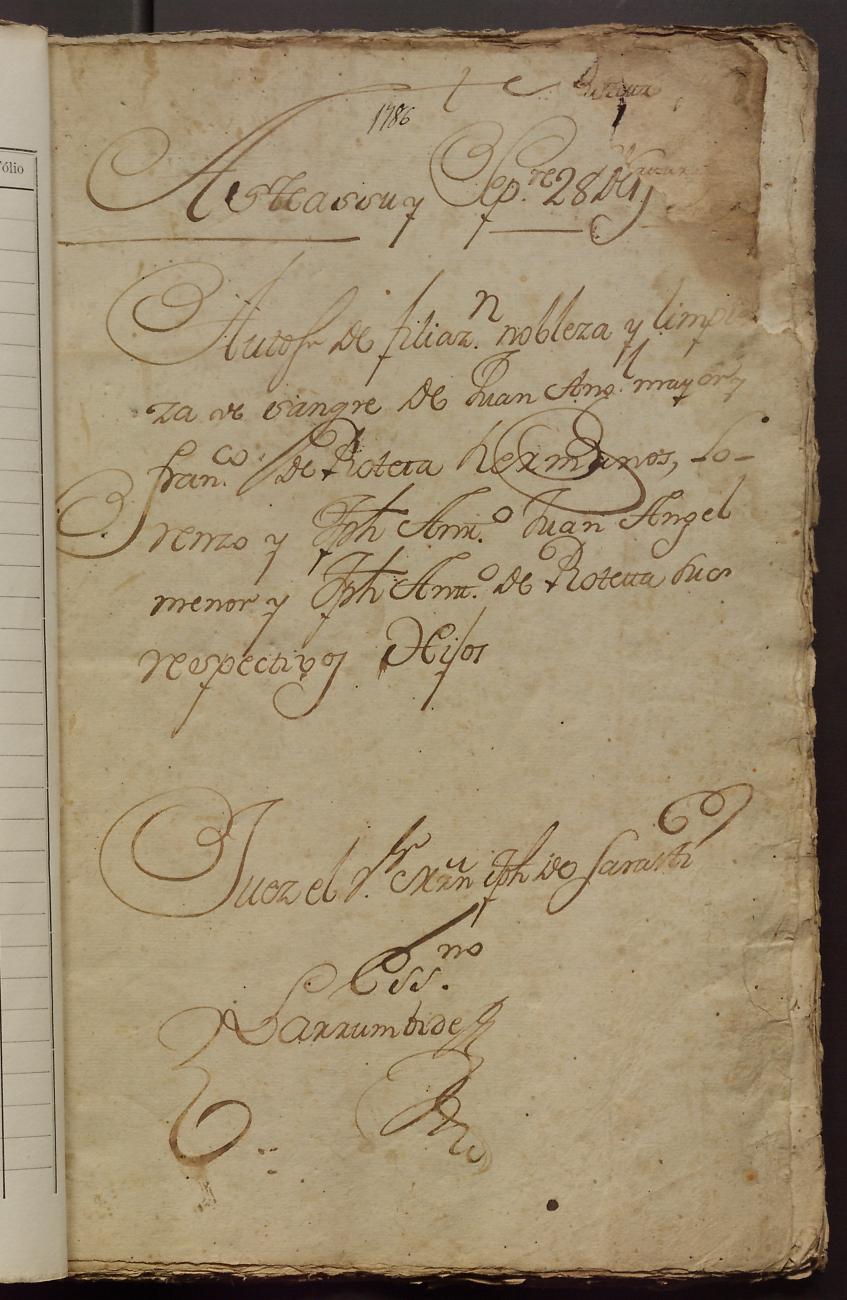 ólio
1786
Asteassu y Sep.re 28 de
Autos de filiaz.n nobleza y limpie
za de sangre de Juan Ang.l mayor y
Fran.co de Roteta hermanos, Lo-
renzo y Jph Antt.o Juan Angel
menor y Jph Antt.o de Roteta sus
respectivos Hijos
Juez el S.r Mrñ Jph de Sarasti
Ess.no
Larrumbide